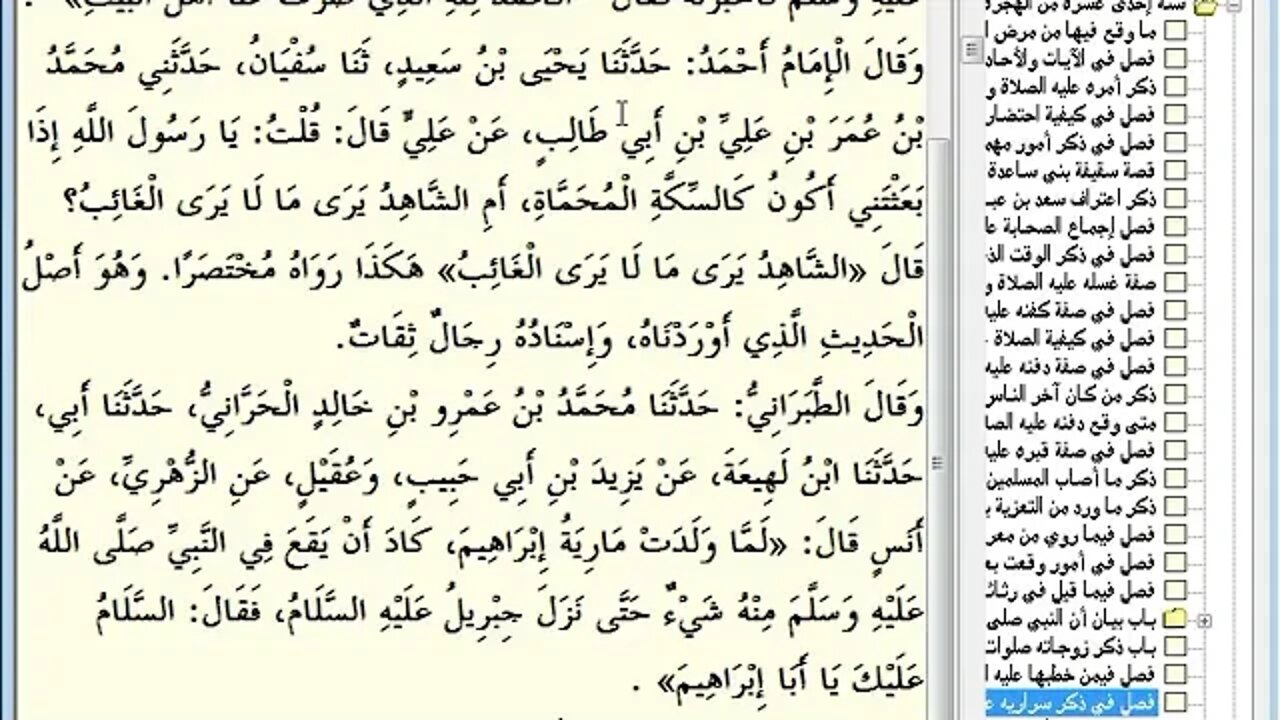 وَقَالَ الْإِمَامُ أَحْمَدُ: حَدَّثَنَا يَحْيَى بْنُ سَعِيدٍ، ثَنَا سُفْيَانُ، حَدَّثَنِي مُحَمَّدُ
بْنُ عُمَرَ بْنِ عَلِيِّ بْنِ أَبِي طَالِبٍ، عَنْ عَلِيٍّ قَالَ: قُلْتُ: يَا رَسُولَ اللَّهِ إِذَا
بَعَثْتَنِي أَكُونُ كَالسِّكَّةِ الْمُحَمَّاةِ، أَمِ الشَّاهِدُ يَرَى مَا لَا يَرَى الْغَائِبُ؟
قَالَ «الشَّاهِدُ يَرَى مَا لَا يَرَى الْغَائِبُ» هَكَذَا رَوَاهُ مُخْتَصَرًا. وَهُوَ أَصْلُ
الْحَدِيثِ الَّذِي أَوْرَدْنَاهُ، وَإِسْنَادُهُ رِجَالٌ ثِقَاتٌ.
وَقَالَ الطَّبَرَانِيُّ: حَدَّثَنَا مُحَمَّدُ بْنُ عَمْرِو بْنِ خَالِدٍ الْحَرَّانِيُّ، حَدَّثَنَا أَبِي،
حَدَّثَنَا ابْنُ لَهِيعَةَ، عَنْ يَزِيدَ بْنِ أَبِي حَبِيبٍ، وَعُقَيْلٍ، عَنِ الزُّهْرِيِّ، عَنْ
أَنَسٍ قَالَ: «لَمَّا وَلَدَتْ مَارِيَةُ إِبْرَاهِيمَ، كَادَ أَنْ يَقَعَ فِي النَّبِيِّ صَلَّى اللَّهُ
عَلَيْهِ وَسَلَّمَ مِنْهُ شَيْءٌ حَتَّى نَزَلَ جِبْرِيلُ عَلَيْهِ السَّلَامُ، فَقَالَ: السَّلَامُ
عَلَيْكَ يَا أَبَا إِبْرَاهِيمَ» .
سنة إحدى عشرة من الهجرة
ما وقع فيها من مرض
فصل في الآيات والأحاد
ذكر أمره عليه الصلاة و
فصل في كيفية احتضار
فصل في ذكر أمور مهم
قصة سقيفة بني ساعدة
ذكر اعتراف سعد بن عب
فصل إجماع الصحابة عا
فصل في ذكر الوقت الذ
صفة غسله عليه الصلاة و
فصل في صفة كفنه عليه
فصل في كيفية الصلاة
فصل في صفة دفنه عليه
ذكر من كان آخر الناس
متى وقع دفنه عليه الصا
فصل في صفة قبره عليه
ذكر ما أصاب المسلمين
ذكر ما ورد من التعزية ب
فصل فيما روي من معر
فصل في أمور وقعت بع
فصل فيما قيل في رثائ
باب بيان أن النبي صلى
باب ذكر زوجاته صلوات
فصل فيمن خطبها عليه ا
فصل في ذكر سراريه ع